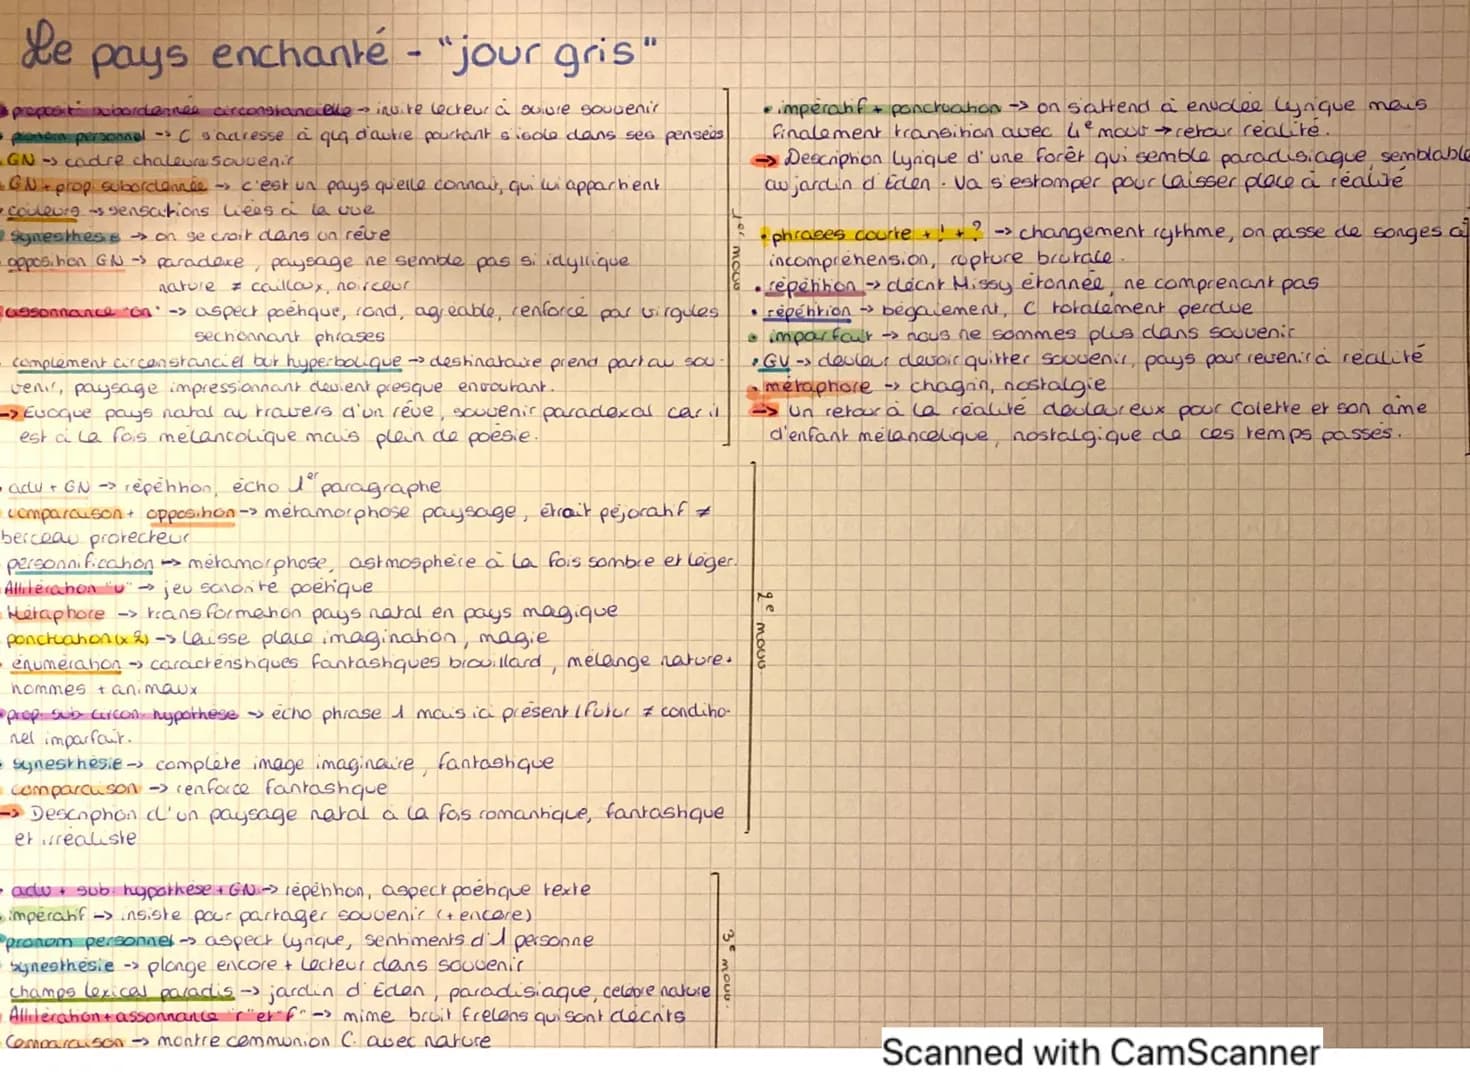 Le pays enchanté - "jour gris"
proposit° subordonnée circonstancielle → invite lecteur à suivre souvenir
pronom personnel → C s'adresse à qlq d'autre pourtant s'isole dans ses pensées
GN → cadre chaleureux souvenir
GN + prop. subordonnée → c'est un pays qu'elle connait, qui lui appartient
couleurs → sensations liées à la vue
synesthésie → on se croit dans un rêve
opposition GN → paradoxe, paysage ne semble pas si idyllique
nature ≠ cailloux, noirceur
assonnance "on" → aspect poétique, rond, agréable, renforcé par virgules
sectionnant phrases
complement circonstanciel but hyperbolique → destinataire prend part au sou-
venir, paysage impressionnant devient presque envoutant.
→ Evoque pays natal au travers d'un rêve, souvenir paradoxal car il
est à la fois mélancolique mais plein de poésie.
1er mouv
adv + GN → répétition, écho 1er paragraphe
comparaison + opposition → métamorphose paysage, était péjoratif ≠
berceau protecteur
personnification → métamorphose, astmosphère à la fois sombre et léger.
Allitération "v" → jeu sonorité poétique
Métaphore → transformation pays natal en pays magique
ponctuation (x2) → laisse place imagination, magie
énumération → caractéristiques fantastiques brouillard, mélange nature +
hommes + animaux
prop. sub circon. hypothèse → écho phrase 1 mais ici présent/futur ≠ conditio-
nel imparfait.
synesthésie → complète image imaginaire, fantastique
comparaison → renforce fantastique
→ Description d'un paysage natal à la fois romantique, fantastique
et irréaliste
2e mouv.
adv + sub. hypothèse + GN → répétition, aspect poétique texte
impératif → insiste pour partager souvenir (+ encore)
pronom personnel → aspect lyrique, sentiments d'1 personne
synesthésie → plonge encore + lecteur dans souvenir
champs lexical paradis → jardin d'Eden, paradisiaque, célèbre nature
Allitération + assonnance "r" et "f" → mime bruit frelons qui sont décrits
Comparaison → montre communion C. avec nature
3e mouv.
• impératif + ponctuation → on s'attend à envolée lyrique mais
finalement transition avec 4e mouv → retour réalité.
→ Description lyrique d'une forêt qui semble paradisiaque, semblable
au jardin d'Eden. Va s'estomper pour laisser place à réalité
• phrases courte + ! + ? → changement rythme, on passe de songes à
incompréhension, rupture brutale.
• répétition → décrit Missy étonnée, ne comprenant pas
• répétition → bégaiement, C totalement perdue
• imparfait → nous ne sommes plus dans souvenir
• GV → douleur devoir quitter souvenir, pays pour revenir à réalité
• métaphore → chagrin, nostalgie
→ Un retour à la réalité douloureux pour Colette et son âme
d'enfant mélancolique, nostalgique de ces temps passés.
Scanned with CamScanner